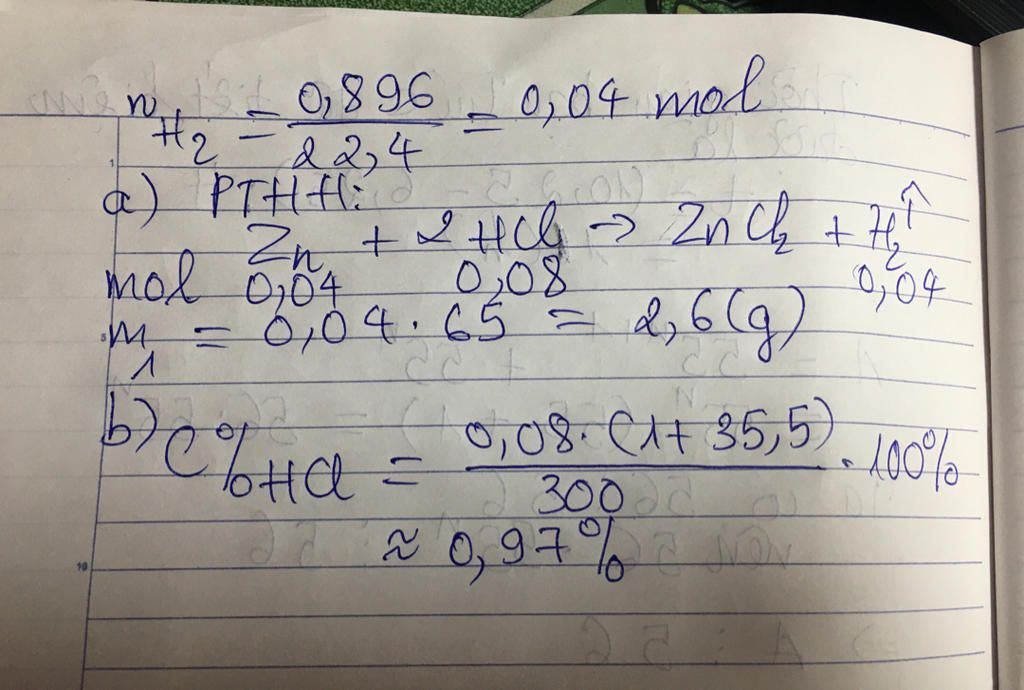 n_H₂ = 0,896/22,4 = 0,04 mol
a) PTHH:
Zn + 2HCl → ZnCl₂ + H₂↑
mol 0,04 0,08 0,04
m₁ = 0,04 . 65 = 2,6(g)
b) C%HCl = 0,08.(1+35,5)/300 . 100%
≈ 0,97%